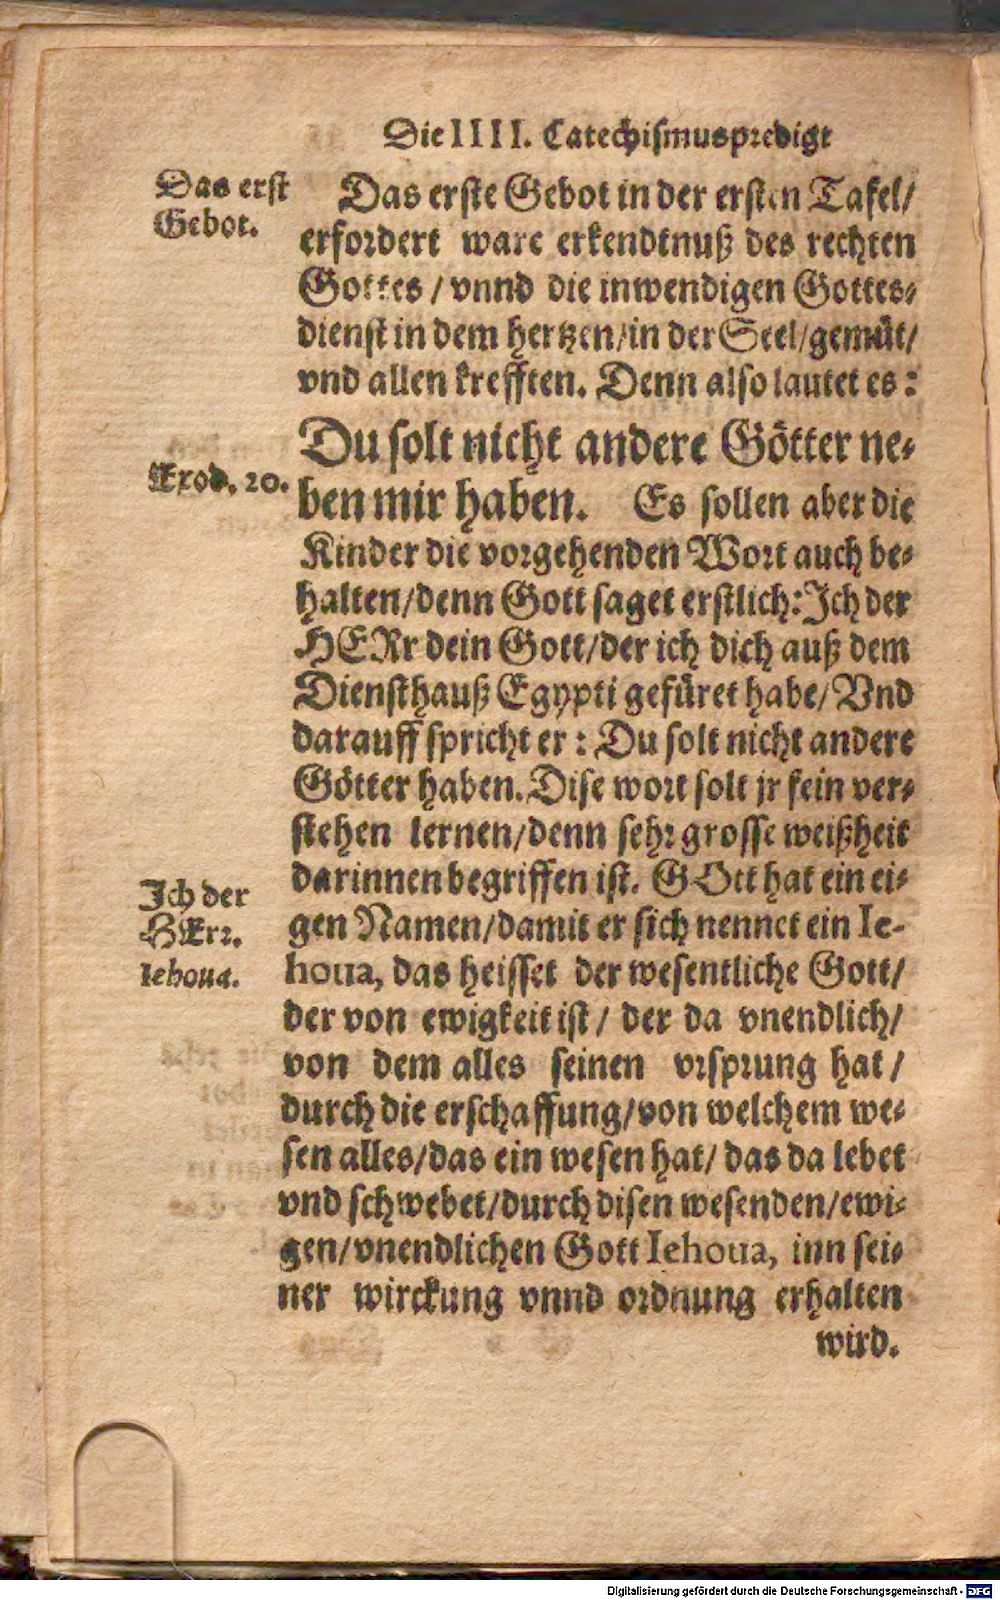 Die IIII. Catechismuspredigt
Das erst
Gebot.
Das erste Gebot in der ersten Tafel/
erfordert ware erkendtnuß des rechten
Gottes / vnnd die inwendigen Gottes-
dienst in dem hertzen/in der Seel/gemüt/
vnd allen krefften. Denn also lautet es:
Du solt nicht andere Götter ne-
Exod. 20.
ben mir haben. Es sollen aber die
Kinder die vorgehenden Wort auch be-
halten/denn Gott saget erstlich: Ich der
HERr dein Gott/der ich dich auß dem
Diensthauß Egypti gefüret habe/ Vnd
darauff spricht er : Du solt nicht andere
Götter haben. Dise wort solt jr fein ver-
stehen lernen/denn sehr grosse weißheit
darinnen begriffen ist. GOtt hat ein ei-
Ich der
HErr.
Iehoua.
gen Namen/damit er sich nennet ein Ie-
houa, das heisset der wesentliche Gott/
der von ewigkeit ist / der da vnendlich/
von dem alles seinen vrsprung hat /
durch die erschaffung/von welchem we-
sen alles/das ein wesen hat/ das da lebet
vnd schwebet/durch disen wesenden/ewi-
gen/vnendlichen Gott Iehoua, inn sei-
ner wirckung vnnd ordnung erhalten
wird.
Digitalisierung gefördert durch die Deutsche Forschungsgemeinschaft - DFG